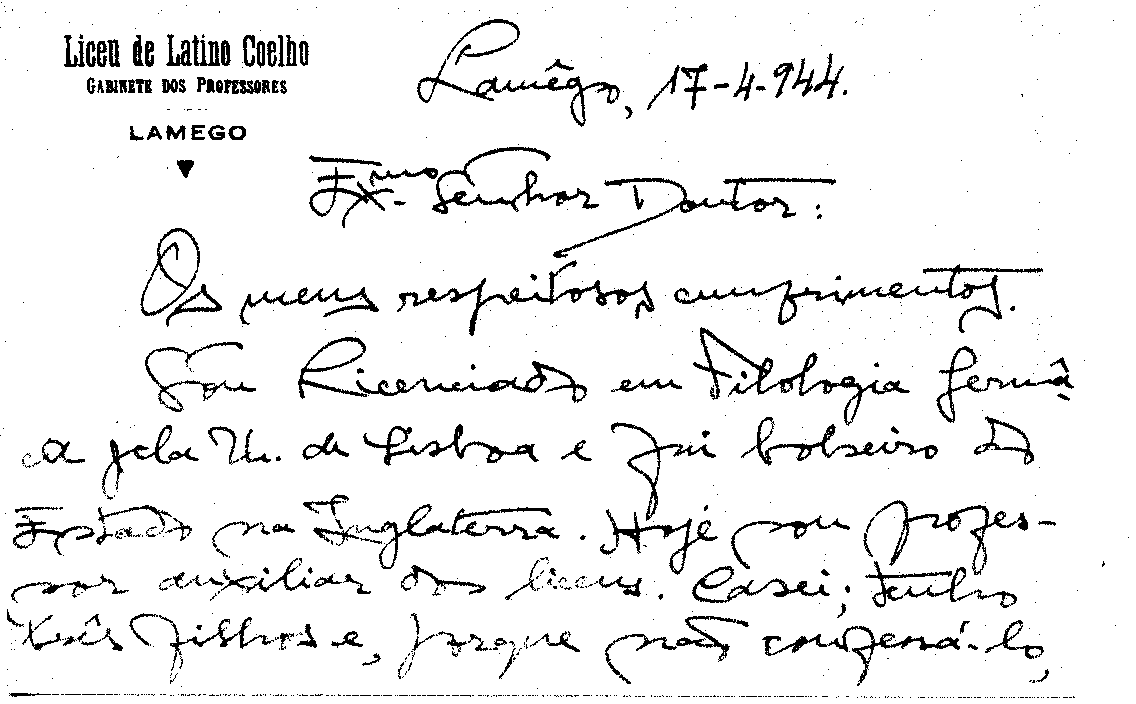 Liceu de Latino Coelho
GABINETE DOS PROFESSORES
LAMEGO
Lamêgo, 17-4-944.
Exmo Senhor Doutor:
Os meus respeitosos cumprimentos.
Sou Licenciado em Filologia Germâ-
ca pela Un. de Lisboa e fui bolseiro do
Estado na Inglaterra. Hoje sou profes-
sor auxiliar dos liceus. Casei; tenho
três filhos e, porque não confessá-lo,